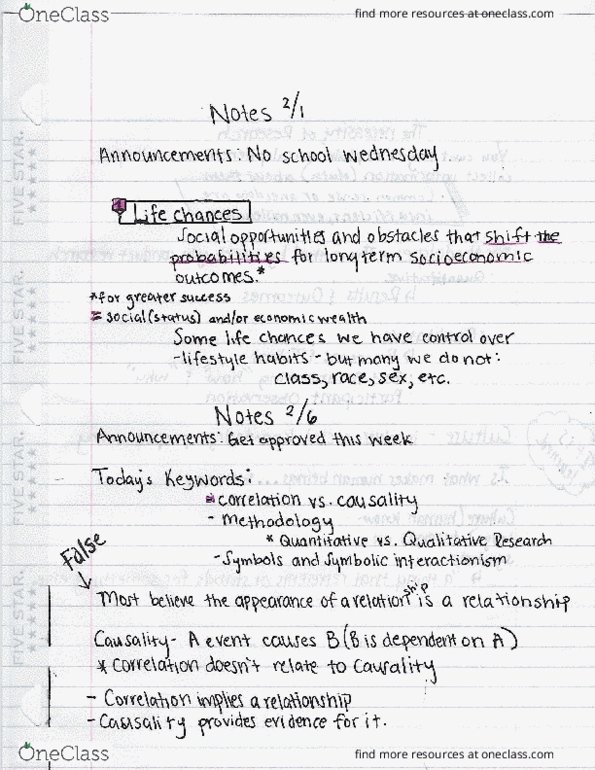 OneClass
find more resources at oneclass.com
Notes 2/1
Announcements: No school Wednesday
Life chances
Social opportunities and obstacles that shift the
probabilities for longterm socioeconomic
outcomes.*
*for greater success
= social (status) and/or economic wealth
Some life chances we have control over
-lifestyle habits - but many we do not:
class, race, sex, etc.
Notes 2/6
Announcements: Get approved this week
Today's Keywords:
correlation vs. causality
- Methodology
* Quantitative vs. Qualitative Research
-Symbols and Symbolic interactionism
False
Most believe the appearance of a relationship is a relationship
Causality- A event causes B (B is dependent on A)
* Correlation doesn't relate to Causality
- Correlation implies a relationship
- Causality provides evidence for it.
FIVE STAR.
FIVE STAR.
FIVE STAR.
FIVE STAR.
OneClass
find more resources at oneclass.com